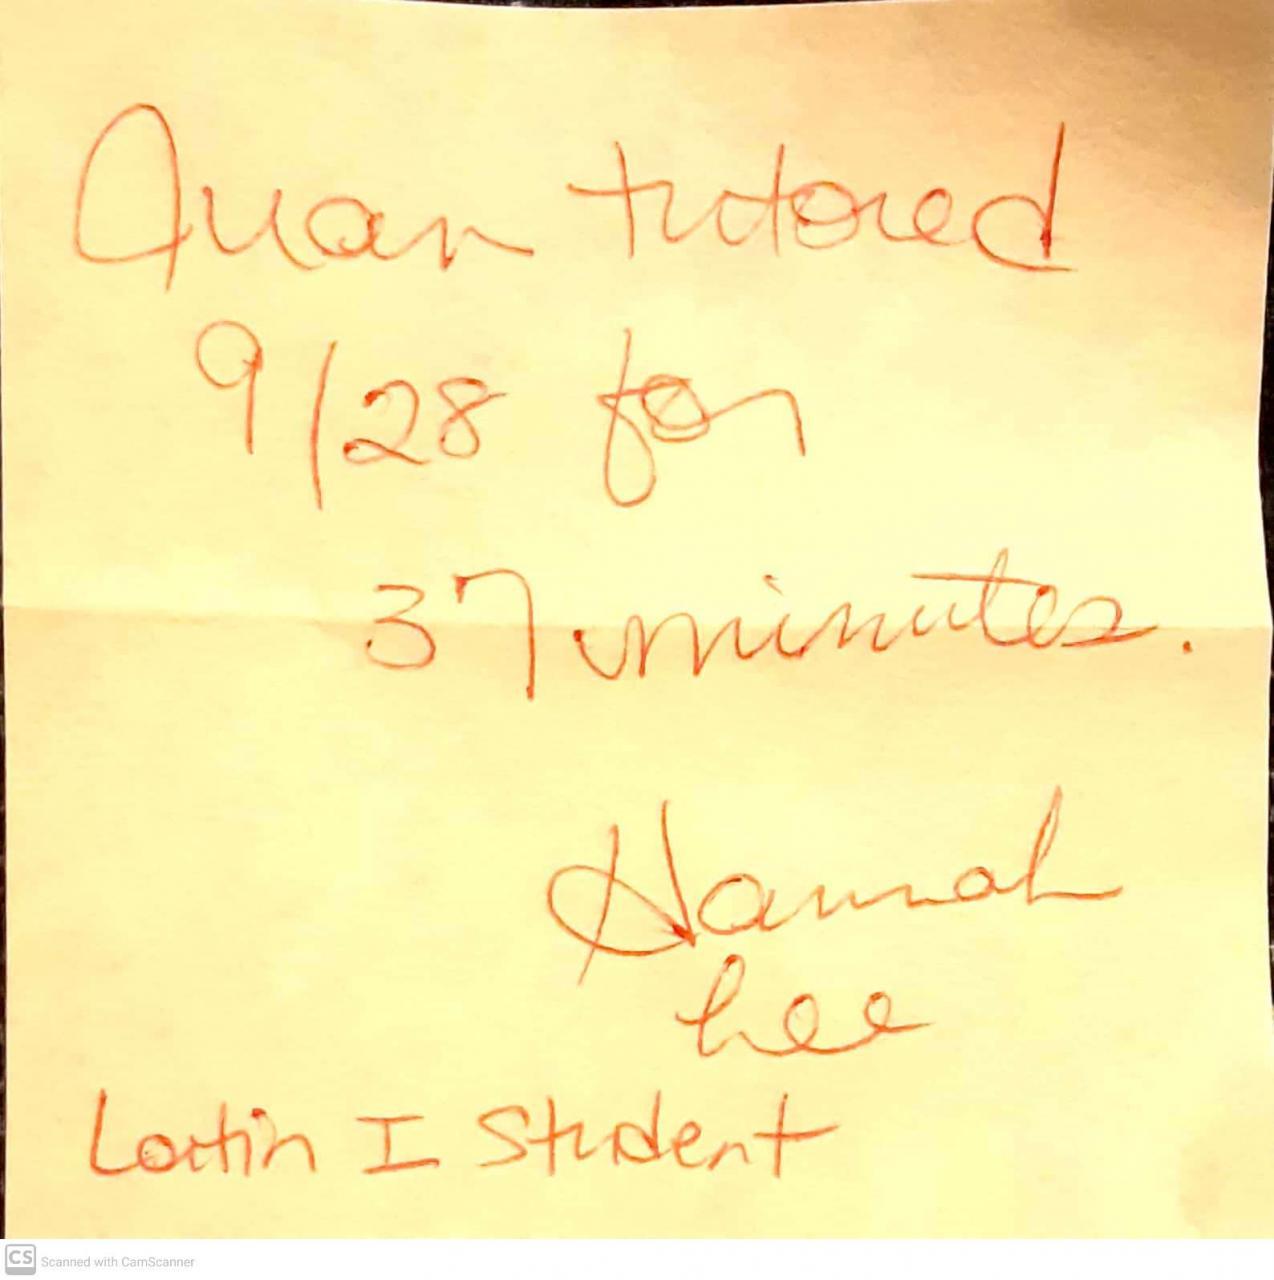 Juan tutored
9/28 for
37 minutes.
Hannah
Lee
Latin I Student
CS Scanned with CamScanner